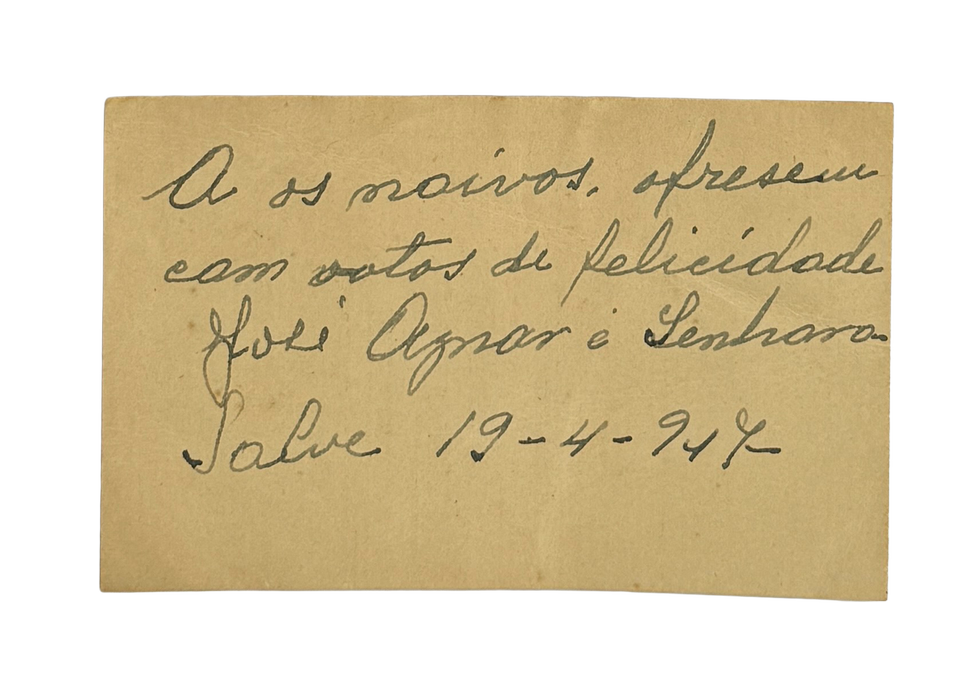 A os noivos, ofresem
com votos de felicidade
José Agnar é Senhora
Salve 19-4-947